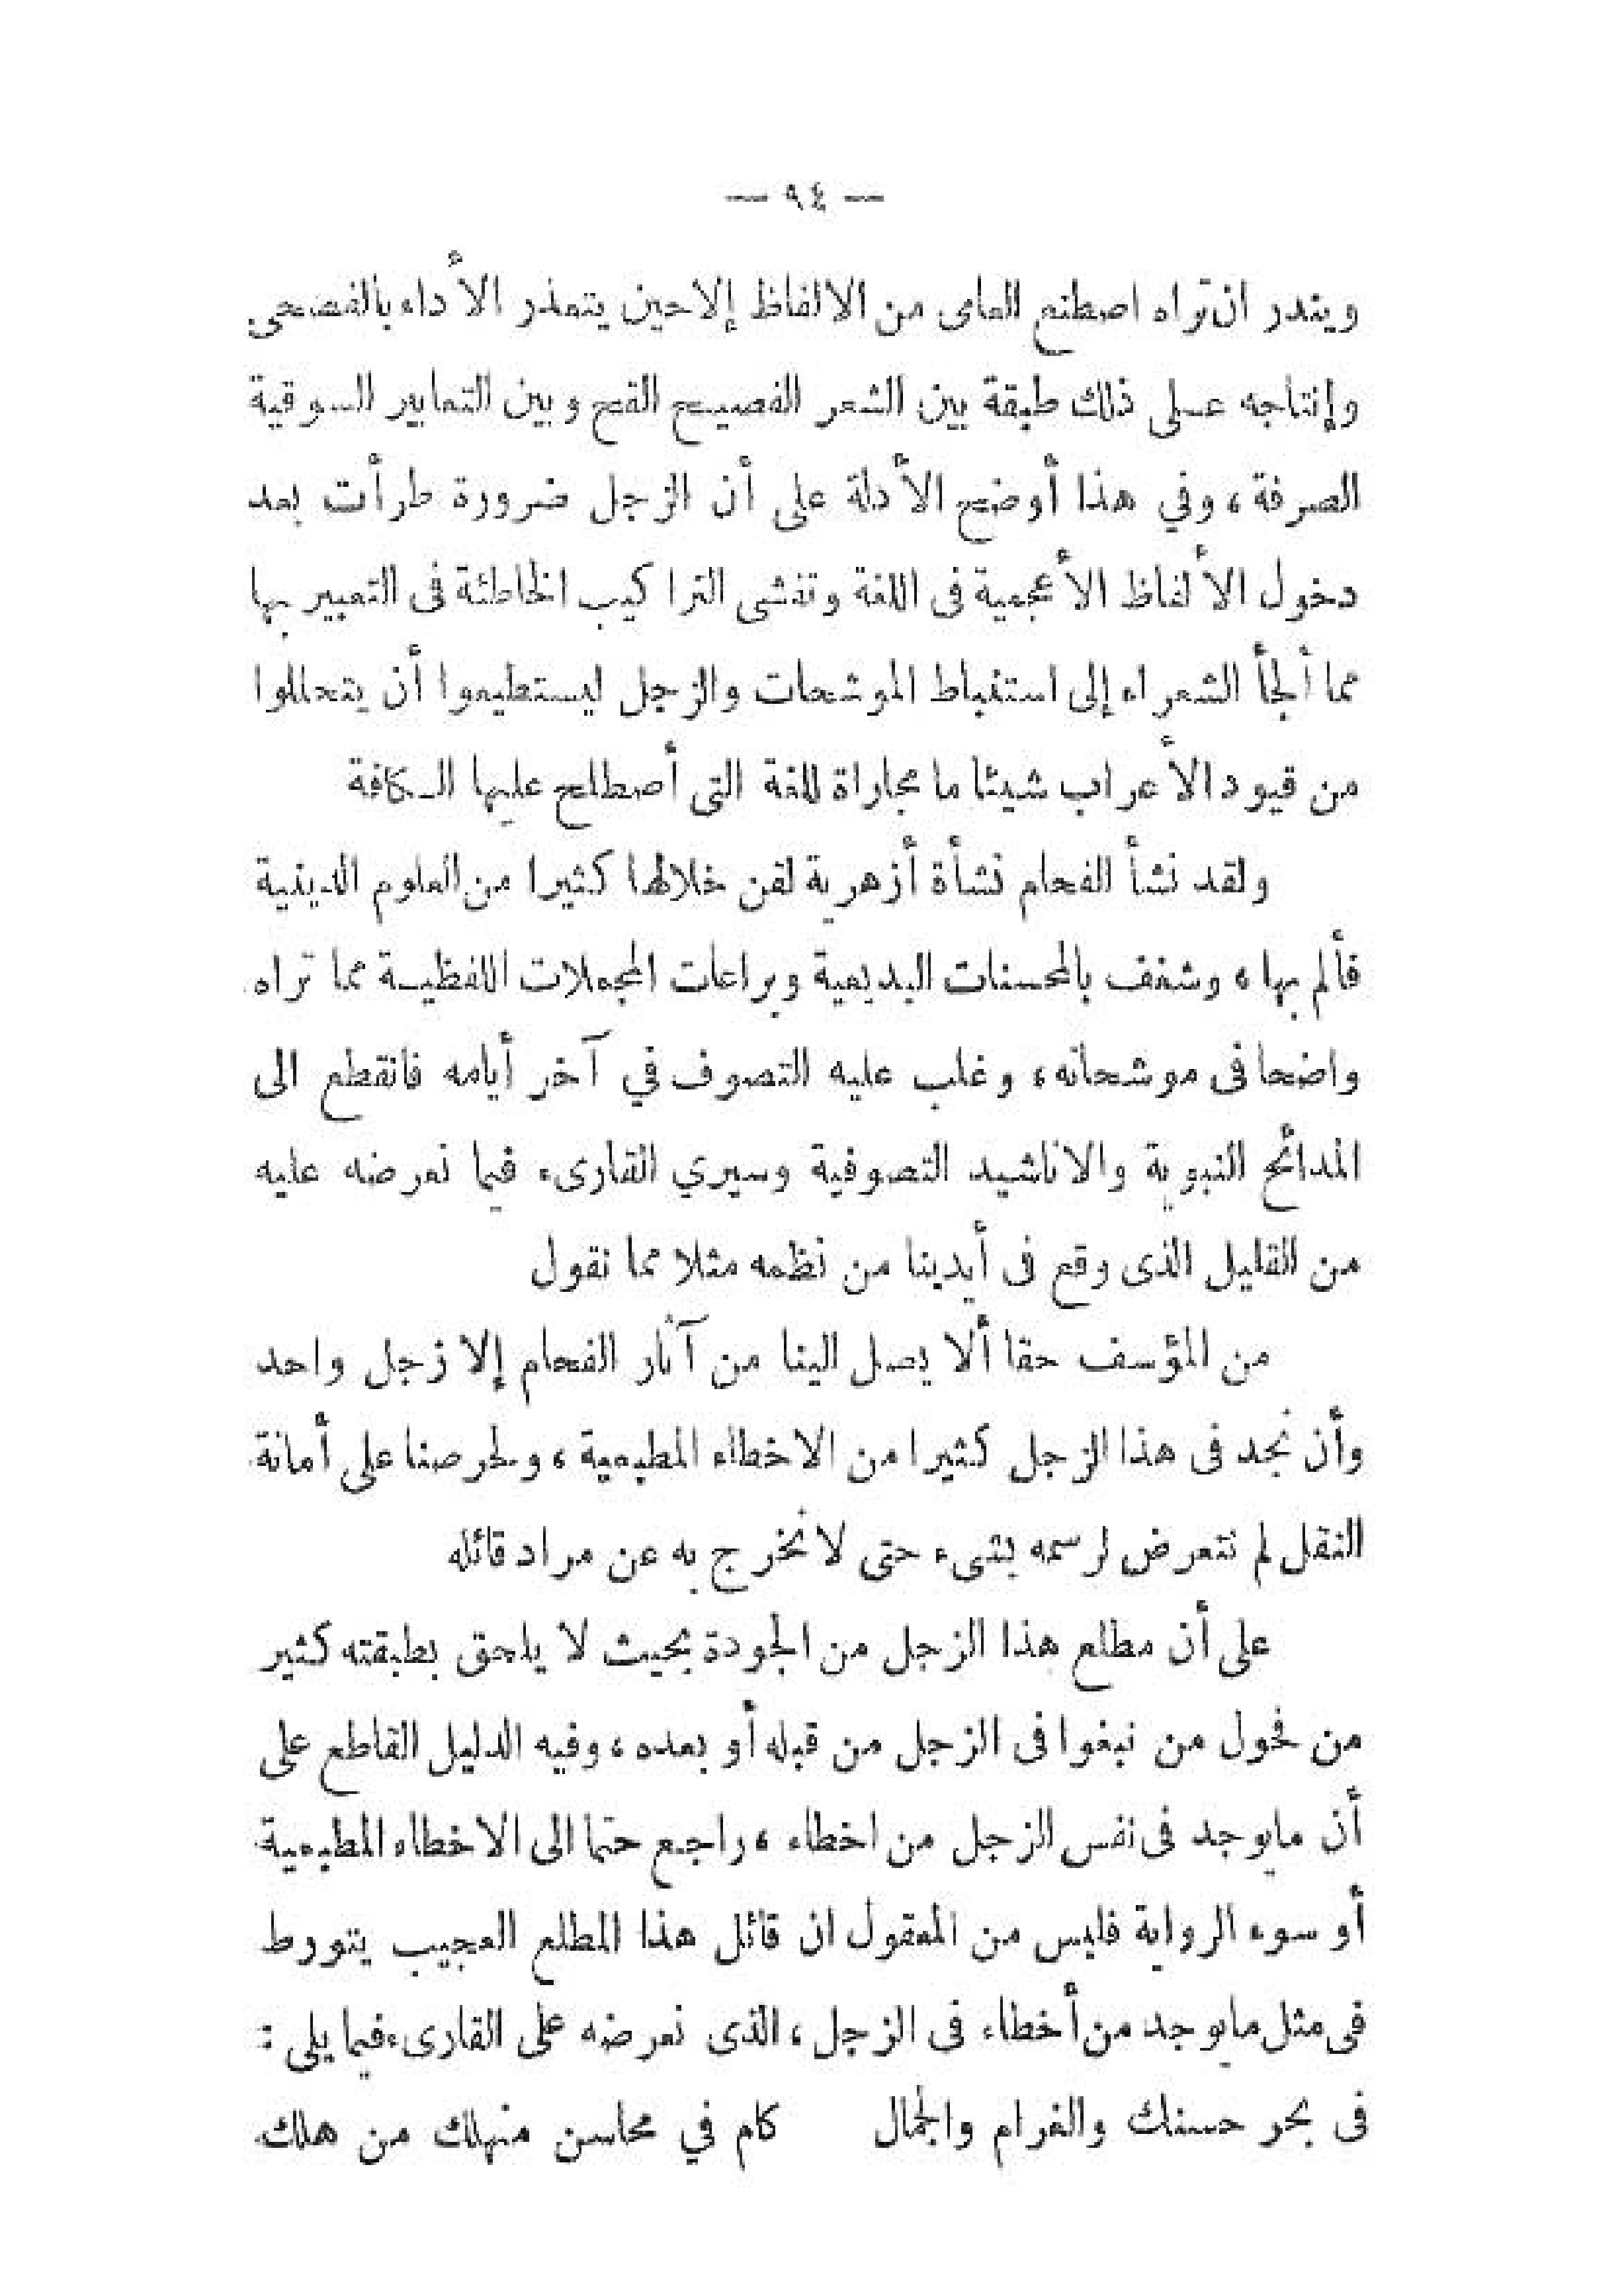 — ٩٤ —
ويندر ان تراه اصطنع العامى من الالفاظ إلا حين يتعذر الأداء بالفصحى
وإنتاجه على ذلك طبقة بين الشعر الفصيح القح وبين التعابير السوقية
الصرفة ، وفي هذا أوضح الأدلة على أن الزجل ضرورة طرأت بعد
دخول الألفاظ الأعجمية فى اللغة وتفشى التراكيب الخاطئة فى التعبير بها
مما ألجأ الشعراء إلى استنباط الموشحات والزجل ليستطيعوا أن يتحللوا
من قيود الأعراب شيئا ما مجاراة للغة التى أصطلح عليها الكافة
ولقد نشأ الفحام نشأة أزهرية لقن خلالها كثيرا من العلوم الدينية
فألم بها ، وشغف بالمحسنات البديعية وبراعات المجملات اللفظية مما تراه
واضحا فى موشحاته ، وغلب عليه التصوف في آخر أيامه فانقطع الى
المدائح النبوية والاناشيد التصوفية وسيري القارىء فيما نعرضه عليه
من القليل الذى وقع فى أيدينا من نظمه مثلا مما نقول
من المؤسف حقا ألا يصل الينا من آثار الفحام إلا زجل واحد
وأن نجد فى هذا الزجل كثيرا من الاخطاء المطبعية ، ولحرصنا على أمانة
النقل لم نتعرض لرسمه بشىء حتى لا نخرج به عن مراد قائله
على أن مطلع هذا الزجل من الجودة بحيث لا يلحق بطبقته كثير
من فحول من نبغوا فى الزجل من قبله أو بعده ، وفيه الدليل القاطع على
أن مايوجد فى نفس الزجل من اخطاء ، راجع حتما الى الاخطاء المطبعية
أو سوء الرواية فليس من المعقول ان قائل هذا المطلع العجيب يتورط
فى مثل مايوجد من أخطاء فى الزجل ، الذى نعرضه على القارىء فيما يلى :
فى بحر حسنك والغرام والجمال كام في محاسن منهلك من هلك